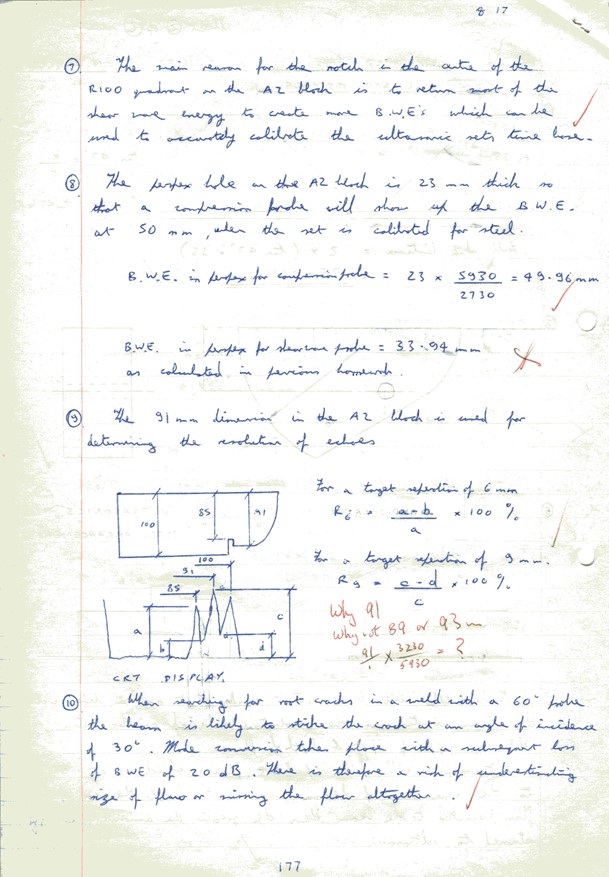 8 17
⑦ The main reason for the notch in the centre of the
R100 quadrant on the A2 block is to return most of the
shear wave energy to create more B.W.E's which can be
used to accurately calibrate the ultrasonic sets time base.
⑧ The perpex hole on the A2 block is 23 mm thick so
that a compression probe will show up the B.W.E.
at 50 mm, when the set is calibrated for steel.
B.W.E. in perpex for compression probe = 23 × 5930/2730 = 49.96 mm
B.W.E. in perpex for shearwave probe = 33.94 mm
as calculated in pervious homework.
⑨ The 91 mm dimension in the A2 block is used for
determining the resolution of echoes
100 85 91
For a target repertion of 6 mm
R₆ = a-b/a × 100 %
For a target repertion of 9 mm.
R₉ = c-d/c × 100 %
100
91
85
a b c d
CRT DISPLAY.
Why 91
Why not 89 or 93 m
91/1 × 3230/5930 = ?
⑩ When searching for root cracks in a weld with a 60° probe
the beam is likely to strike the crack at an angle of incidence
of 30°. Mode conversion takes place with a subsequent loss
of BWE of 20 dB. There is therefore a risk of
size of flaw or missing the flaw altogether.
177